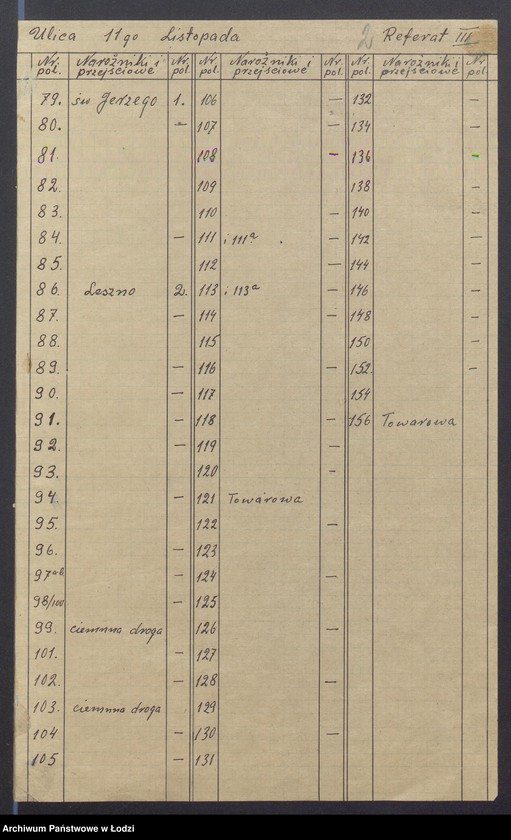 Ulica 11go Listopada 2 Referat III
Nr. pol. Narożniki i przejściowe Nr. pol. Nr. pol. Narożniki i przejściowe Nr. pol. Nr. pol. Narożniki i przejściowe Nr. pol.
79. św Jerzego 1. 106 — 132 —
80. — 107 — 134 —
81. 108 — 136 —
82. 109 138 —
83. 110 — 140 —
84. — 111 i 111a — 142 —
85. 112 — 144 —
86. Leszno 2. 113 i 113a — 146 —
87. — 114 — 148 —
88. 115 150 —
89. — 116 — 152 —
90. — 117 154
91. — 118 — 156 Towarowa
92. — 119 —
93. 120 —
94. — 121 Towarowa
95. 122 —
96. — 123
97ab — 124 —
98/100 — 125
99. ciemmna droga 126 —
101. — 127
102. — 128 —
103. ciemmna droga 129
104 — 130 —
105 — 131
Archiwum Państwowe w Łodzi